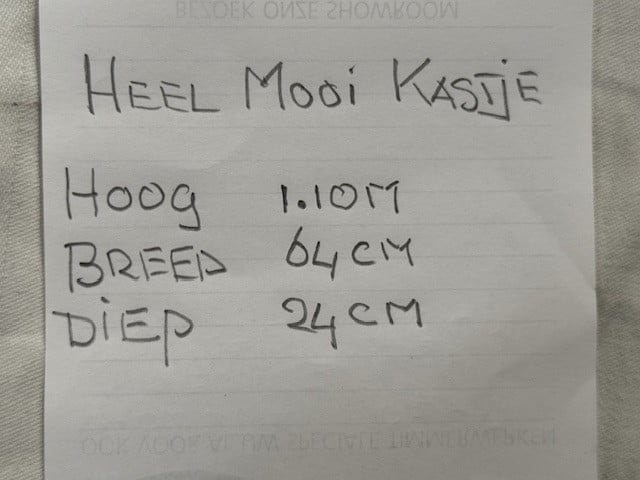 BEZOEK ONZE SHOWROOM
HEEL MOOI KASTJE
HOOG 1.10M
BREED 64 CM
DIEP 24 CM
OOK VOOR AL UW SPECIALE TIMMERWERKEN